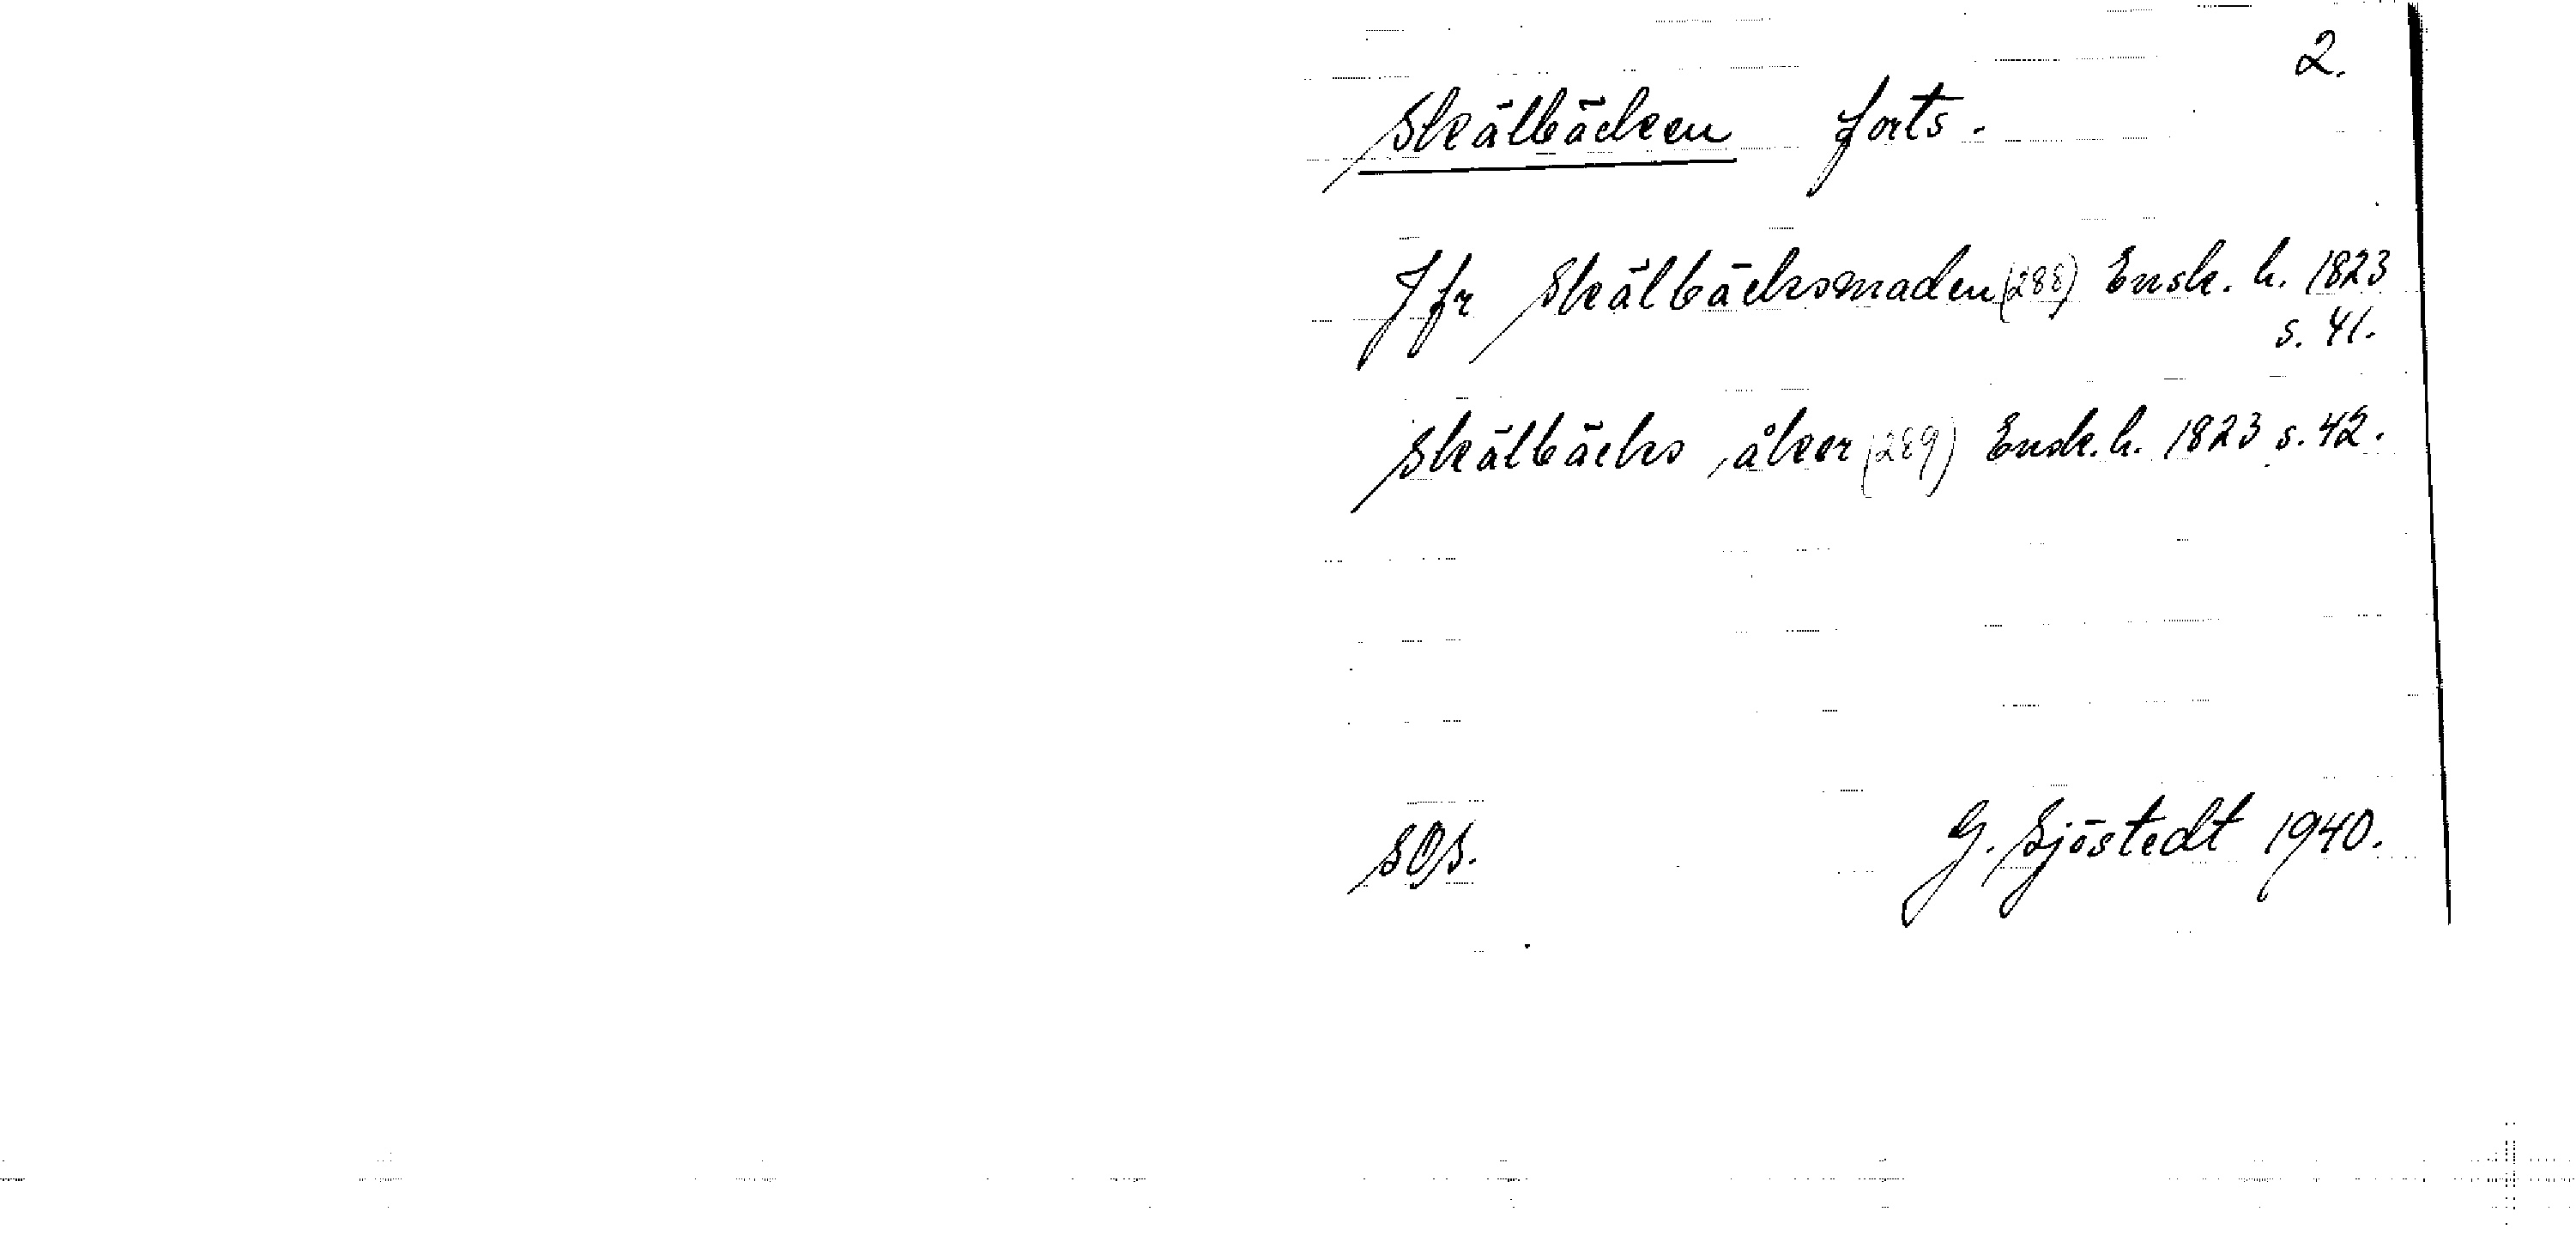 2.
Skälbäcken forts.
Jfr Skälbäcksmaden (288) Ensk. h. 1823
s. 41.
Skälbäcks åker (289) Ensk. h. 1823 s. 42.
SOS. G. Sjöstedt 1940.